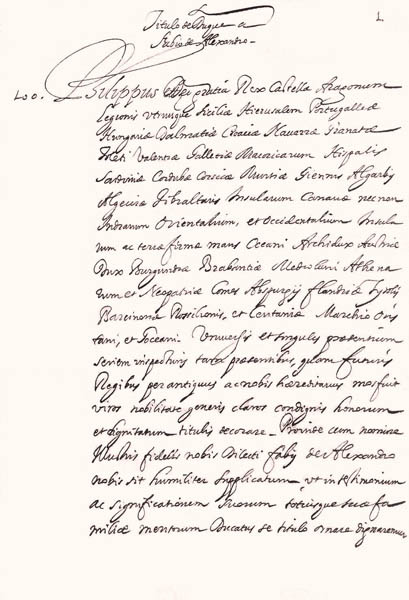 Titulo de Duque a
Fabio de Alexandro.
L
Loo.
Philippus Dei gratia Rex Castella Aragonum
legionis utriusque Sicilia Hierusalem Portugallia
Hungaria Dalmatia Croacia Navarra Granata
Toleti Valentia Gallecia Maioricarum Hispalis
Sardinia Corduba Corsica Murtia Giennis Algarby
Algecira Gibraltaris Insularum Canaria necnon
Indiarum Orientalium, et Occidentalium Insula
rum ac terra firma maris Oceani Archidux Austria
Dux Burgundia Brabancia Mediolani Athena
rum et Neopatria Comes Abspurgij Flandria Tyrolis
Barcinona Rosilionis, et Ceritania Marchio Oris
tani, et Goceani. Universis et singulis praesentium
seriem inspecturis tam praesentibus, quam futuris
Regibus per antiquus ac nobis haereditarius mos fuit
viros nobilitate generis claros condignis honorum
et dignitatum titulis decorare. Proinde cum nomine
Illustris fidelis nobis Dilecti Fabij de Alexandro
nobis sit humiliter supplicatum ut in testimonium
ac significationem suorum totiusque suae fa
miliae meritorum Ducatus se titulo ornare dignaremur